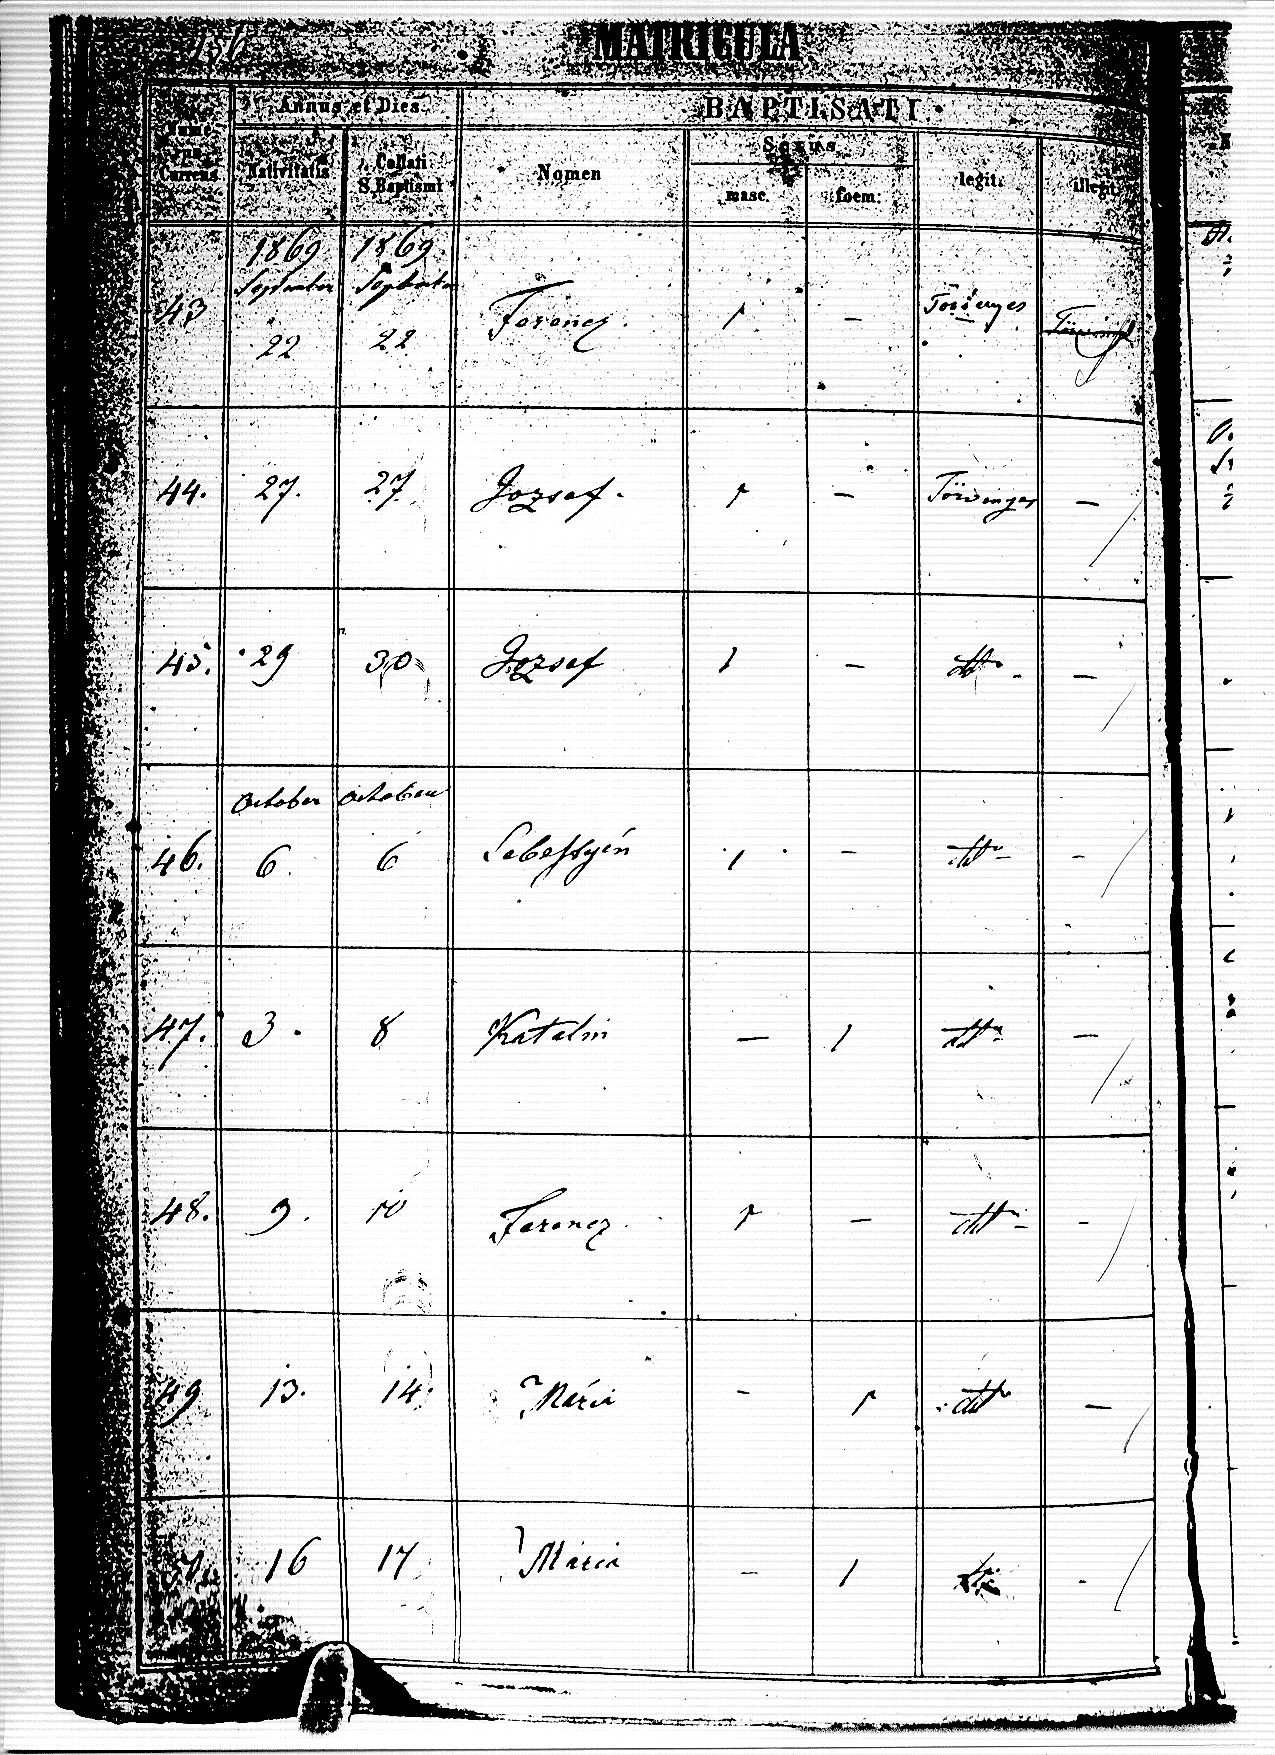 156
MATRICULA
Annus et Dies. BAPTISATI.
Nume-
rus
Currens
Nativitatis
Collati
S. Baptismi
Nomen
Sexus
masc. foem.
legit. illegit.
1869 1869
September September
43 22 22 Ferencz. 1 – Törvenyes
44. 27. 27 Jozsef. 1 – Törvenyes –
45. 29 30 Jozsef 1 – dtto –
October October
46. 6 6 Sebestyén 1 – dtto –
47. 3. 8 Katalin – 1 dtto –
48. 9. 10 Ferencz. 1 – dtto –
49 13. 14. Mária – 1 dtto –
50. 16 17 Mária – 1 dtto -